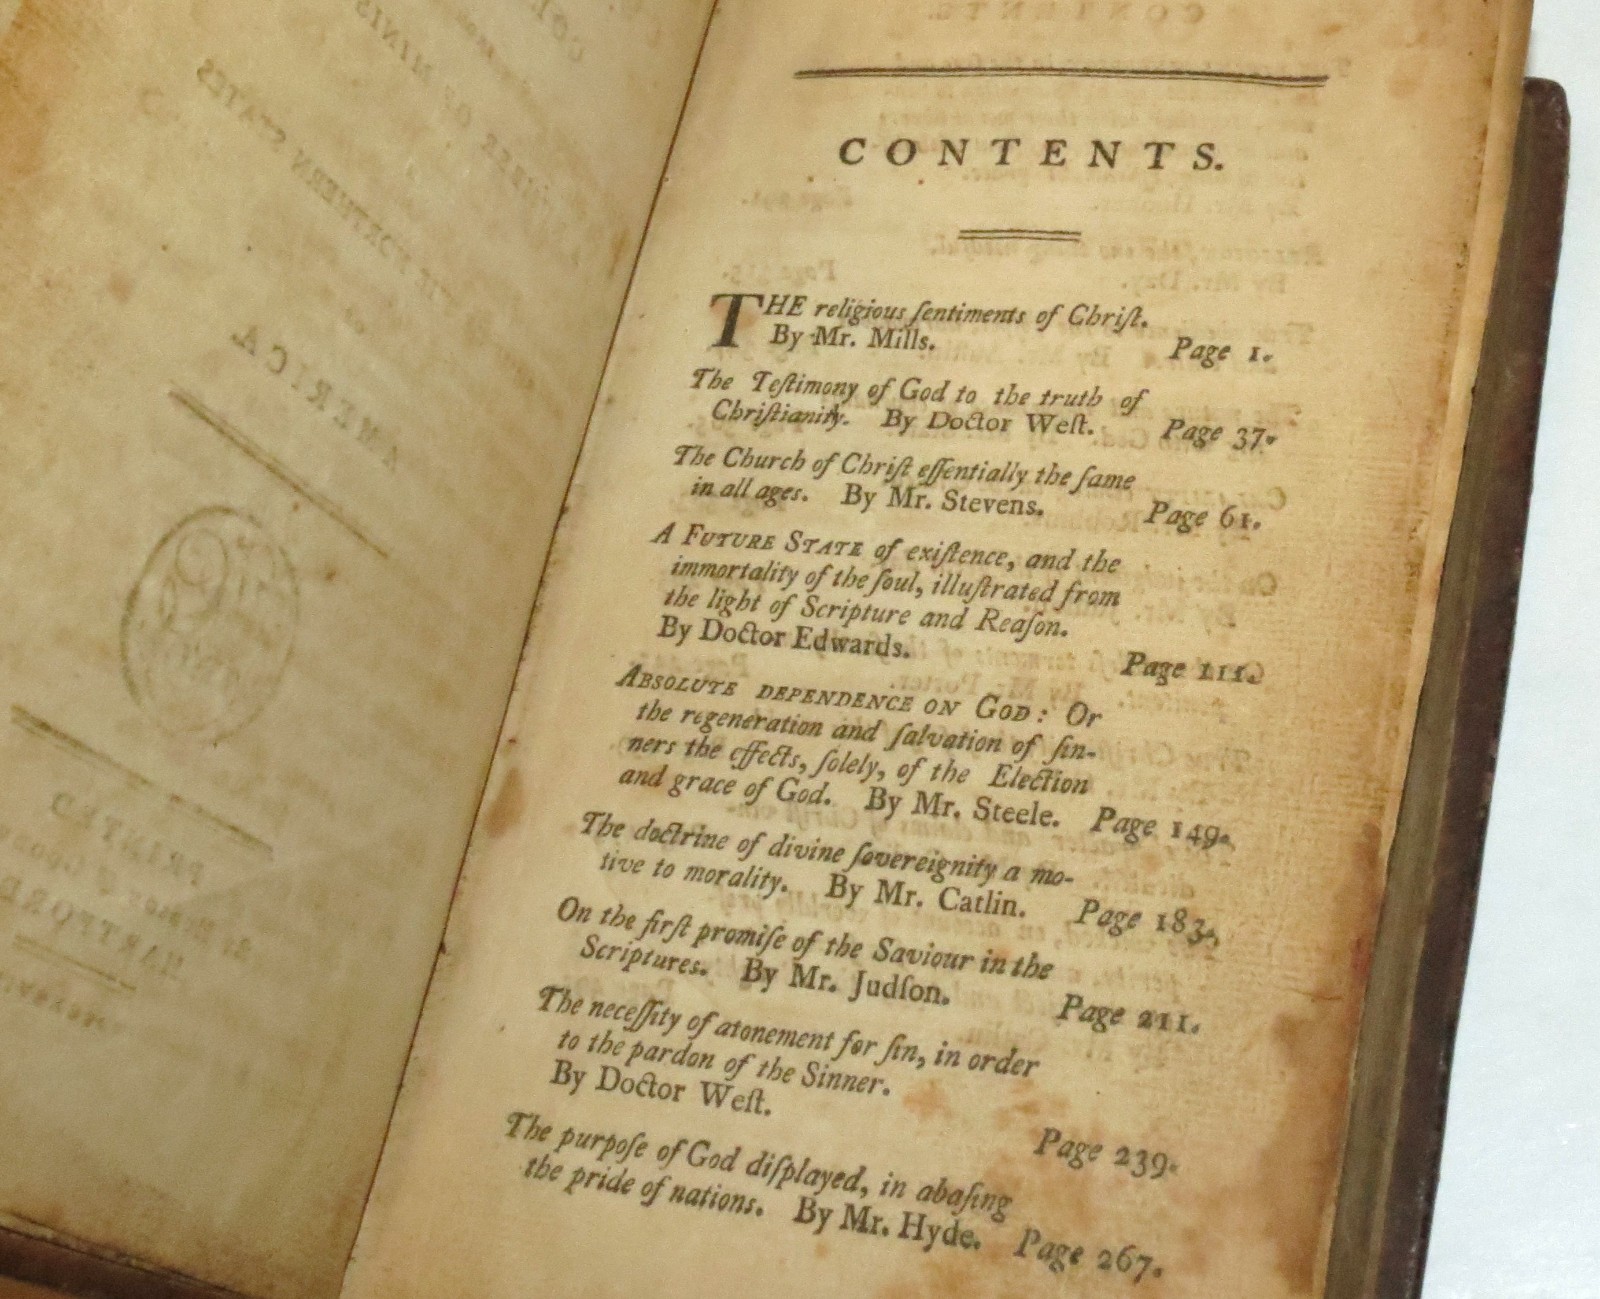 CONTENTS.
THE religious ſentiments of Chriſt.
By Mr. Mills. Page 1.
The Teſtimony of God to the truth of
Chriſtianity. By Doctor Weſt. Page 37.
The Church of Chriſt eſſentially the ſame
in all ages. By Mr. Stevens. Page 61.
A FUTURE STATE of exiſtence, and the
immortality of the ſoul, illuſtrated from
the light of Scripture and Reaſon.
By Doctor Edwards. Page 111.
ABSOLUTE DEPENDENCE ON GOD: Or
the regeneration and ſalvation of ſin-
ners the effects, ſolely, of the Election
and grace of God. By Mr. Steele. Page 149.
The doctrine of divine ſovereignity a mo-
tive to morality. By Mr. Catlin. Page 183.
On the firſt promiſe of the Saviour in the
Scriptures. By Mr. Judſon. Page 211.
The neceſſity of atonement for ſin, in order
to the pardon of the Sinner.
By Doctor Weſt. Page 239.
The purpoſe of God diſplayed, in abaſing
the pride of nations. By Mr. Hyde. Page 267.